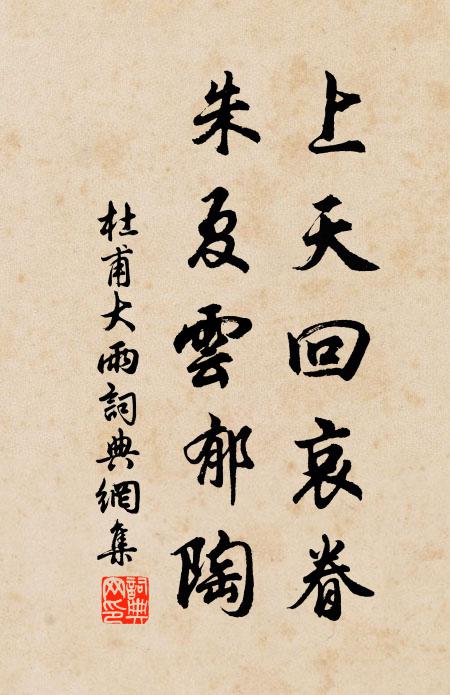 上天回哀眷
朱夏雲郁陶
杜甫大雨詞典網集
詞典
网印